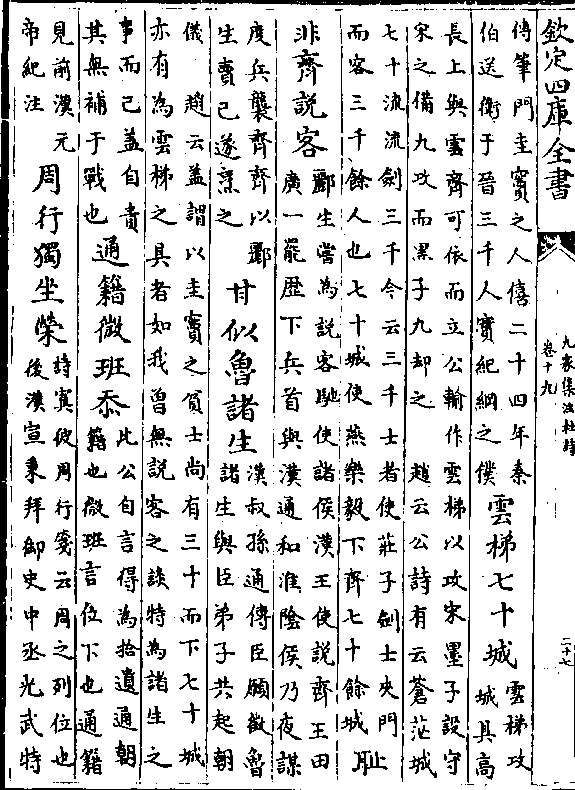 欽定四庫全書
九家集注杜詩
卷十九
二十七
傳篳門圭竇之人僖二十四年秦
伯送衛于晉三千人實紀綱之僕
雲梯七十城
雲梯攻
城具高
長上與雲齊可依而立公輸作雲梯以攻宋墨子設守
宋之備九攻而墨子九却之　趙云公詩有云蒼茫城
七十流流劍三千今云三千士者使莊子劍士夾門
而客三千餘人也七十城使燕樂毅下齊七十餘城
恥
非齊說客
酈生嘗為說客馳使諸侯漢王使說齊王田
廣一罷歷下兵首與漢通和淮陰侯乃夜謀
度兵襲齊齊以酈
生賣己遂烹之
甘似魯諸生
漢叔孫通傳臣願徵魯
諸生與臣弟子共起朝
儀　趙云蓋謂以圭竇之負士尚有三十而下七十城
亦有為雲梯之具者如我曾無說客之談特為諸生之
事而已蓋自責
其無補于戰也
通籍微班忝
此公自言得為拾遺通朝
籍也微班言位下也通籍
見前漢元
帝紀注
周行獨坐榮
詩寘彼周行箋云周之列位也
後漢宣秉拜御史中丞光武特